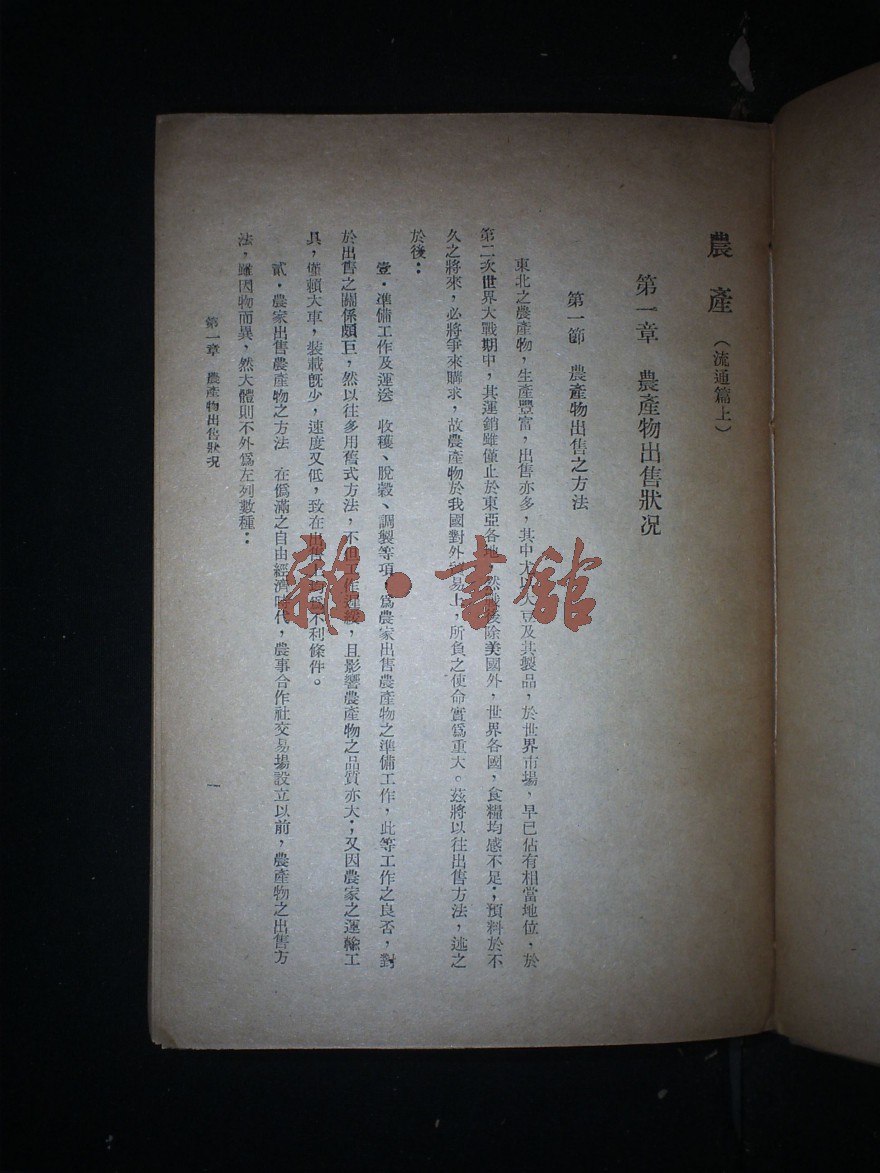 農產(流通篇上)
第一章 農產物出售狀况
第一節 農產物出售之方法
東北之農產物，生產豐富，出售亦多，其中尤以大豆及其製品，於世界市場，早已佔有相當地位，於
第二次世界大戰期中，其運銷雖僅止於東亞各地，然戰後除美國外，世界各國，食糧均感不足；預料於不
久之將來，必將爭來購求，故農產物於我國對外貿易上，所負之使命實爲重大。茲將以往出售方法，述之
於後：
壹·準備工作及運送 收穫、脫穀、調製等項，爲農家出售農產物之準備工作，此等工作之良否，對
於出售之關係頗巨，然以往多用舊式方法，不但工作遲緩，且影響農產物之品質亦大；又因農家之運輸工
具，僅賴大車，裝載旣少，速度又低，致在出售上均爲不利條件。
貳·農家出售農產物之方法 在僞滿之自由經濟時代，農事合作社交易場設立以前，農產物之出售方
法，雖因物而異，然大體則不外爲左列數種：
第一章 農產物出售狀况
一
雜·書舘